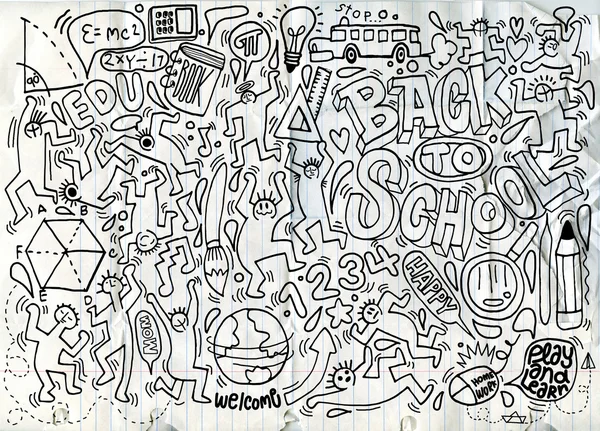 E=mc²
Stop..
π
90°
EDU
BOOK
BACK
TO
SCHOOL
A B
F
E
D
1 2 3 4
HAPPY
welcome
HOME
WORK
Play
and
Learn